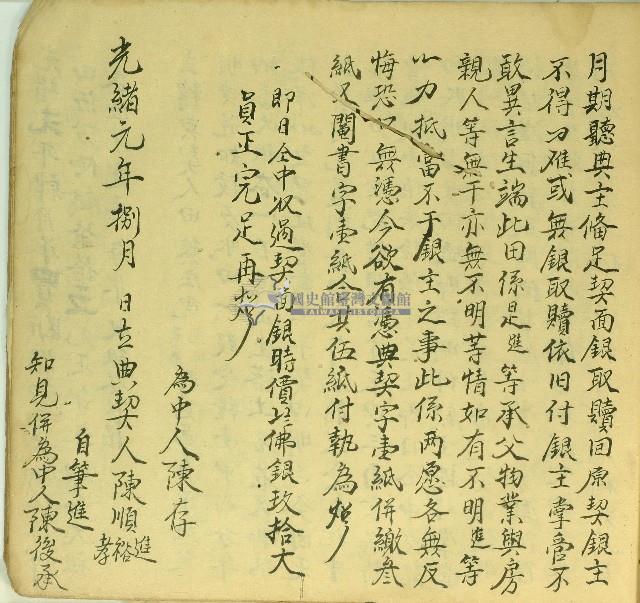 月期聽典主俻足契面銀取贖回原契銀主
不得刁难或無銀取贖依旧付銀主掌管不
敢異言生端此田係是進等承父物業與房
親人等無干亦無不明等情如有不明進等
小力抵當不干銀主之事此係两愿各無反
悔恐口無憑今欲有憑典契字壹紙併繳叁
紙又鬮書字壹紙合共伍紙付執為炤
即日仝中收過契面銀時價平佛銀玖拾大
員正完足再炤
為中人陳存
光緒元年捌月 日立典契人陳順進
裕
孝
自筆進
知見併為中人陳後承
國史館臺灣文獻館
TAIWAN HISTORICA